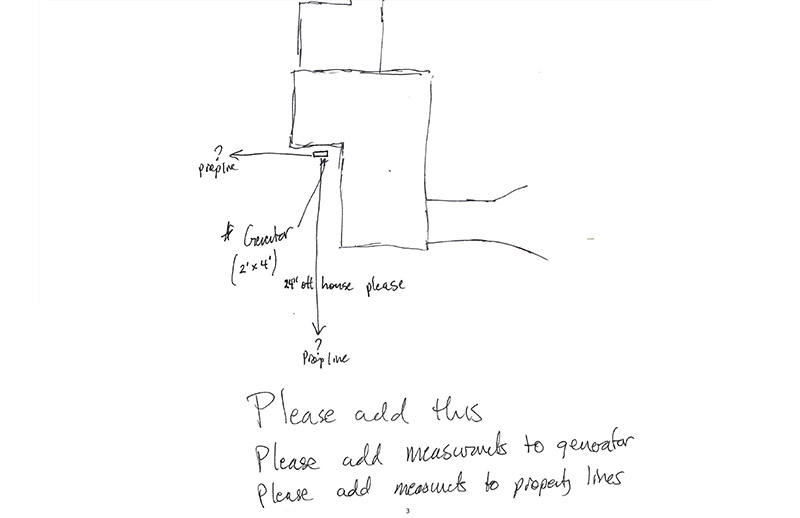 ?
prop line
* Generator
(2' x 4')
24" off house please
?
Prop line
Please add this
Please add measurments to generator
Please add measurets to property lines
3